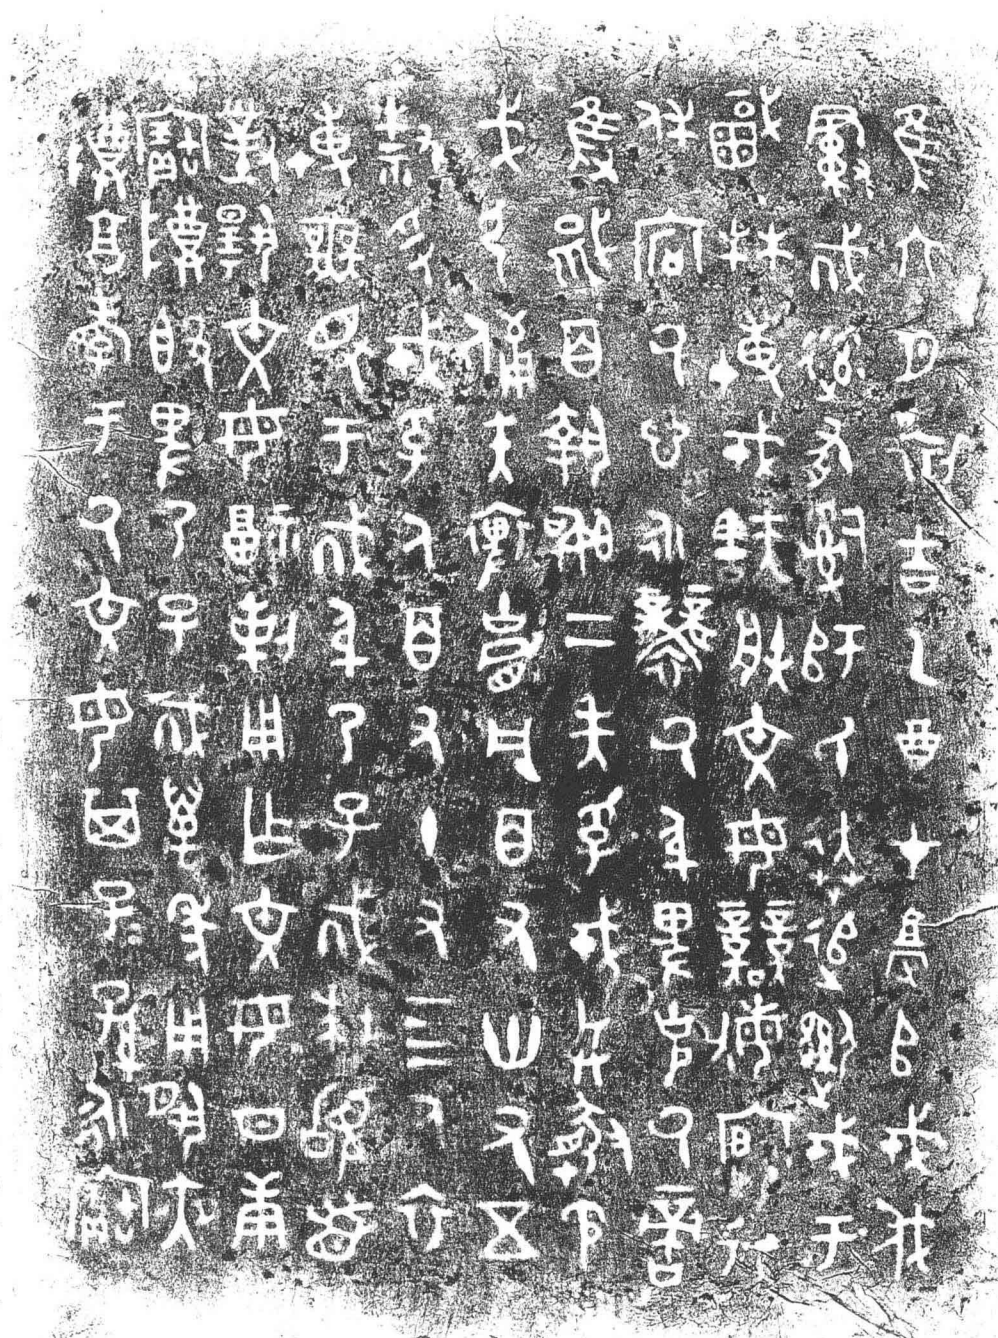 隹六月初吉乙酉才師戎伐
𢦚率有嗣師氏奔追戎于
林博戎㝬朕文母競敏行
休宕厥心永襲厥身卑克厥啻
隹隻馘百執訊二夫孚戎兵盾矛
戈弓備矢裨冑凡百又卅又五
捋戎孚人百又十又四人衣
博無眈于𢦚身乃子𢦚拜𩒨首
對揚文母福剌用乍文母日庚
寶尊簋卑乃子𢦚萬年用夙夜
尊享孝于厥文母其子子孫孫永寶